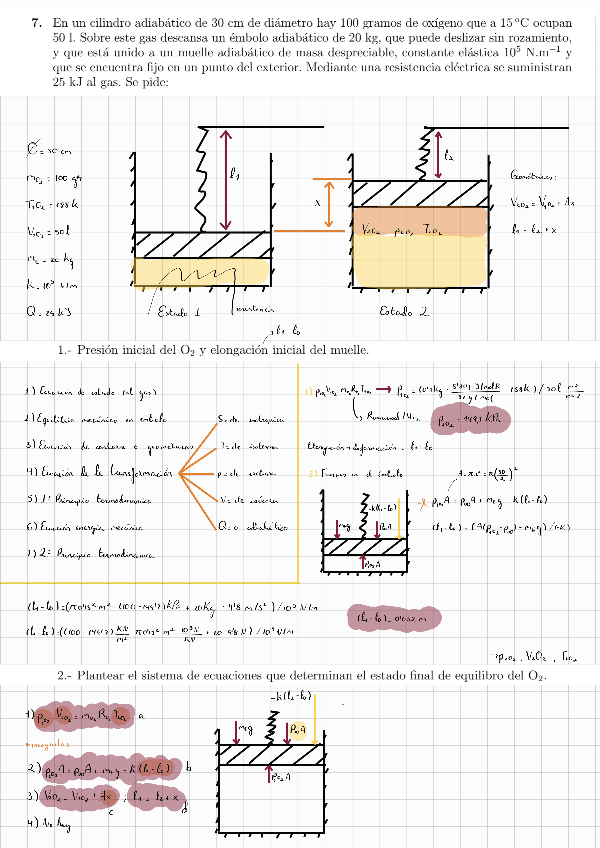 7. En un cilindro adiabático de 30 cm de diámetro hay 100 gramos de oxígeno que a 15 °C ocupan
50 l. Sobre este gas descansa un émbolo adiabático de 20 kg, que puede deslizar sin rozamiento,
y que está unido a un muelle adiabático de masa despreciable, constante elástica 10⁵ N.m⁻¹ y
que se encuentra fijo en un punto del exterior. Mediante una resistencia eléctrica se suministran
25 kJ al gas. Se pide:
Ø = 30 cm
mO₂ = 100 gr
T₁O₂ = 288 K
V₁O₂ = 50 l
mₑ = 20 kg
k = 10⁵ N/m
Q = 25 kJ
l₁
Estado 1
resistencia
x
l₂
V₂O₂ p₂O₂ T₂O₂
Estado 2
Geométricas:
V₂O₂ = V₁O₂ + Ax
l₁ = l₂ + x
l₁ - l₀
1.- Presión inicial del O₂ y elongación inicial del muelle.
1) Ecuación de estado (al gas)
2) Equilibrio mecánico en émbolo
3) Ecuación de contorno o geométricas
4) Ecuación de la transformación
5) 1º Principio termodinámica
6) Ecuación energía mecánica
7) 2º Principio termodinámica
S = cte isentrópica
T = cte isoterma
p = cte isobara
V = cte isócora
Q = 0 adiabático
1) p₁O₂ V₁O₂ = mO₂ RO₂ T₁O₂
Elongación = deformación = l₁ - l₀
2) Fuerzas en el émbolo
-k(l₁-l₀)
mₑg
p₀A
p₁O₂A
(l₁ - l₀) = 0'032 m
p₂O₂, V₂O₂, T₂O₂
2.- Plantear el sistema de ecuaciones que determinan el estado final de equilibrio del O₂.
1) p₂O₂ V₂O₂ = mO₂ RO₂ T₂O₂ a
incógnitas
2) p₂O₂A = p₀A + mₑg - k(l₂-l₀) b
3) V₂O₂ = V₁O₂ + Ax ; l₁ = l₂ + x
c
d
4) No hay
-k(l₂-l₀)
mₑg
p₀A
p₂O₂A